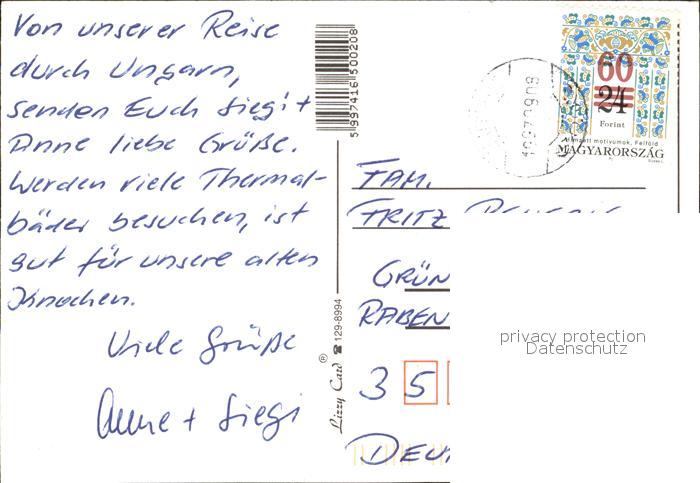 Von unserer Reise
durch Ungarn,
senden Euch Siegi +
Anne liebe Grüße.
Werden viele Thermal-
bäder besuchen, ist
gut für unsere alten
Knochen.
Viele Grüße
Anne + Siegi
5 997416 500208
Lizzy Card ® ☎ 129-8994
60
24
Forint
motívumok, Felföld
MAGYARORSZÁG
FAM.
FRITZ
GRÜN
RABEN
3 5
DEU
privacy protection
Datenschutz